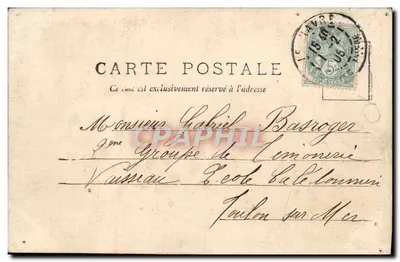 CARTE POSTALE
Ce côté est exclusivement réservé à l'adresse
LE HAVRE
15 40
2
06
Monsieur Gabriel Basroger
2me Groupe de Timonerie
Vaisseau École Calédonien
Toulon sur Mer
CPAPHIL